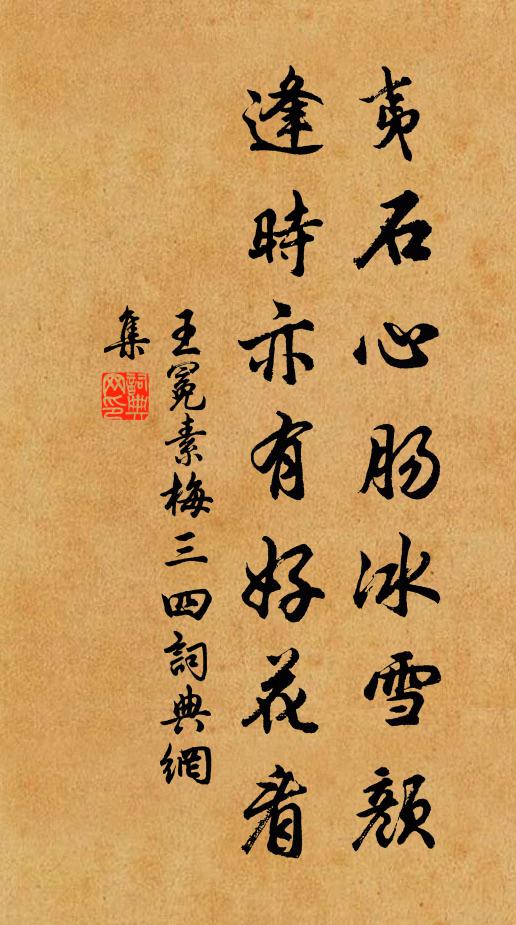 夷石心肠冰雪顔
逢時亦有好花看
王冕素梅三四詞典網
集
詞典
网印